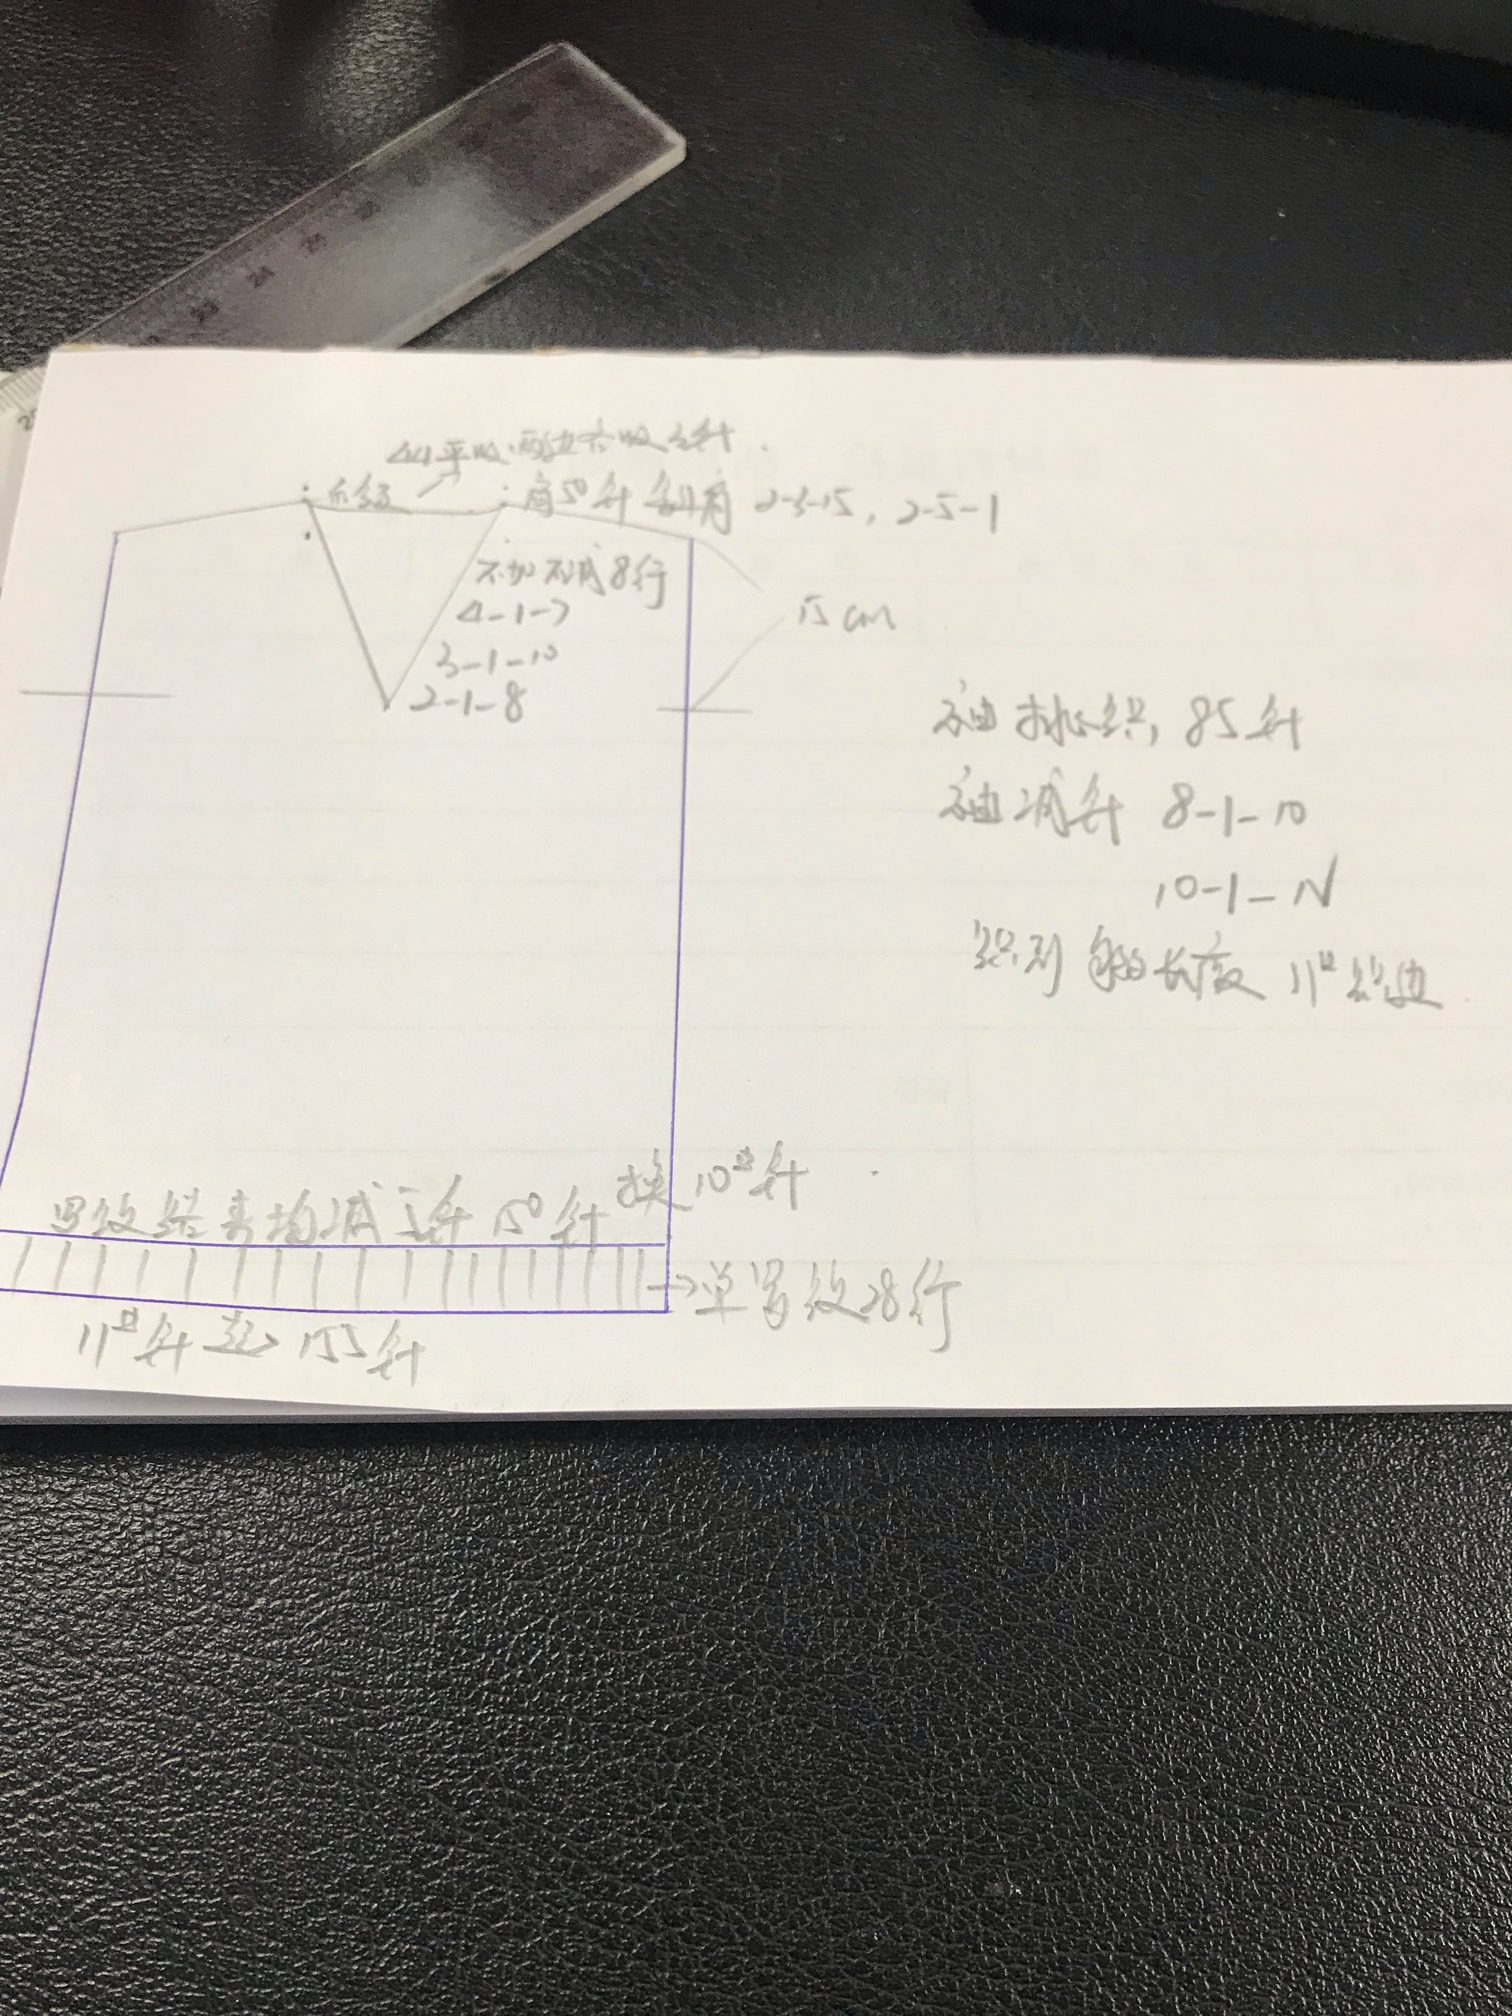 44平收.两边各收3针.
后领
肩50针 斜肩 2-3-15, 2-5-1
不加不减8行
4-1-7
3-1-10
2-1-8
15cm
袖挑织, 85针
袖减针 8-1-10
10-1-N
织到 长度 11# 边.
换10#针
罗纹结束均减5针 150针
单罗纹28行
11#针 起 155针